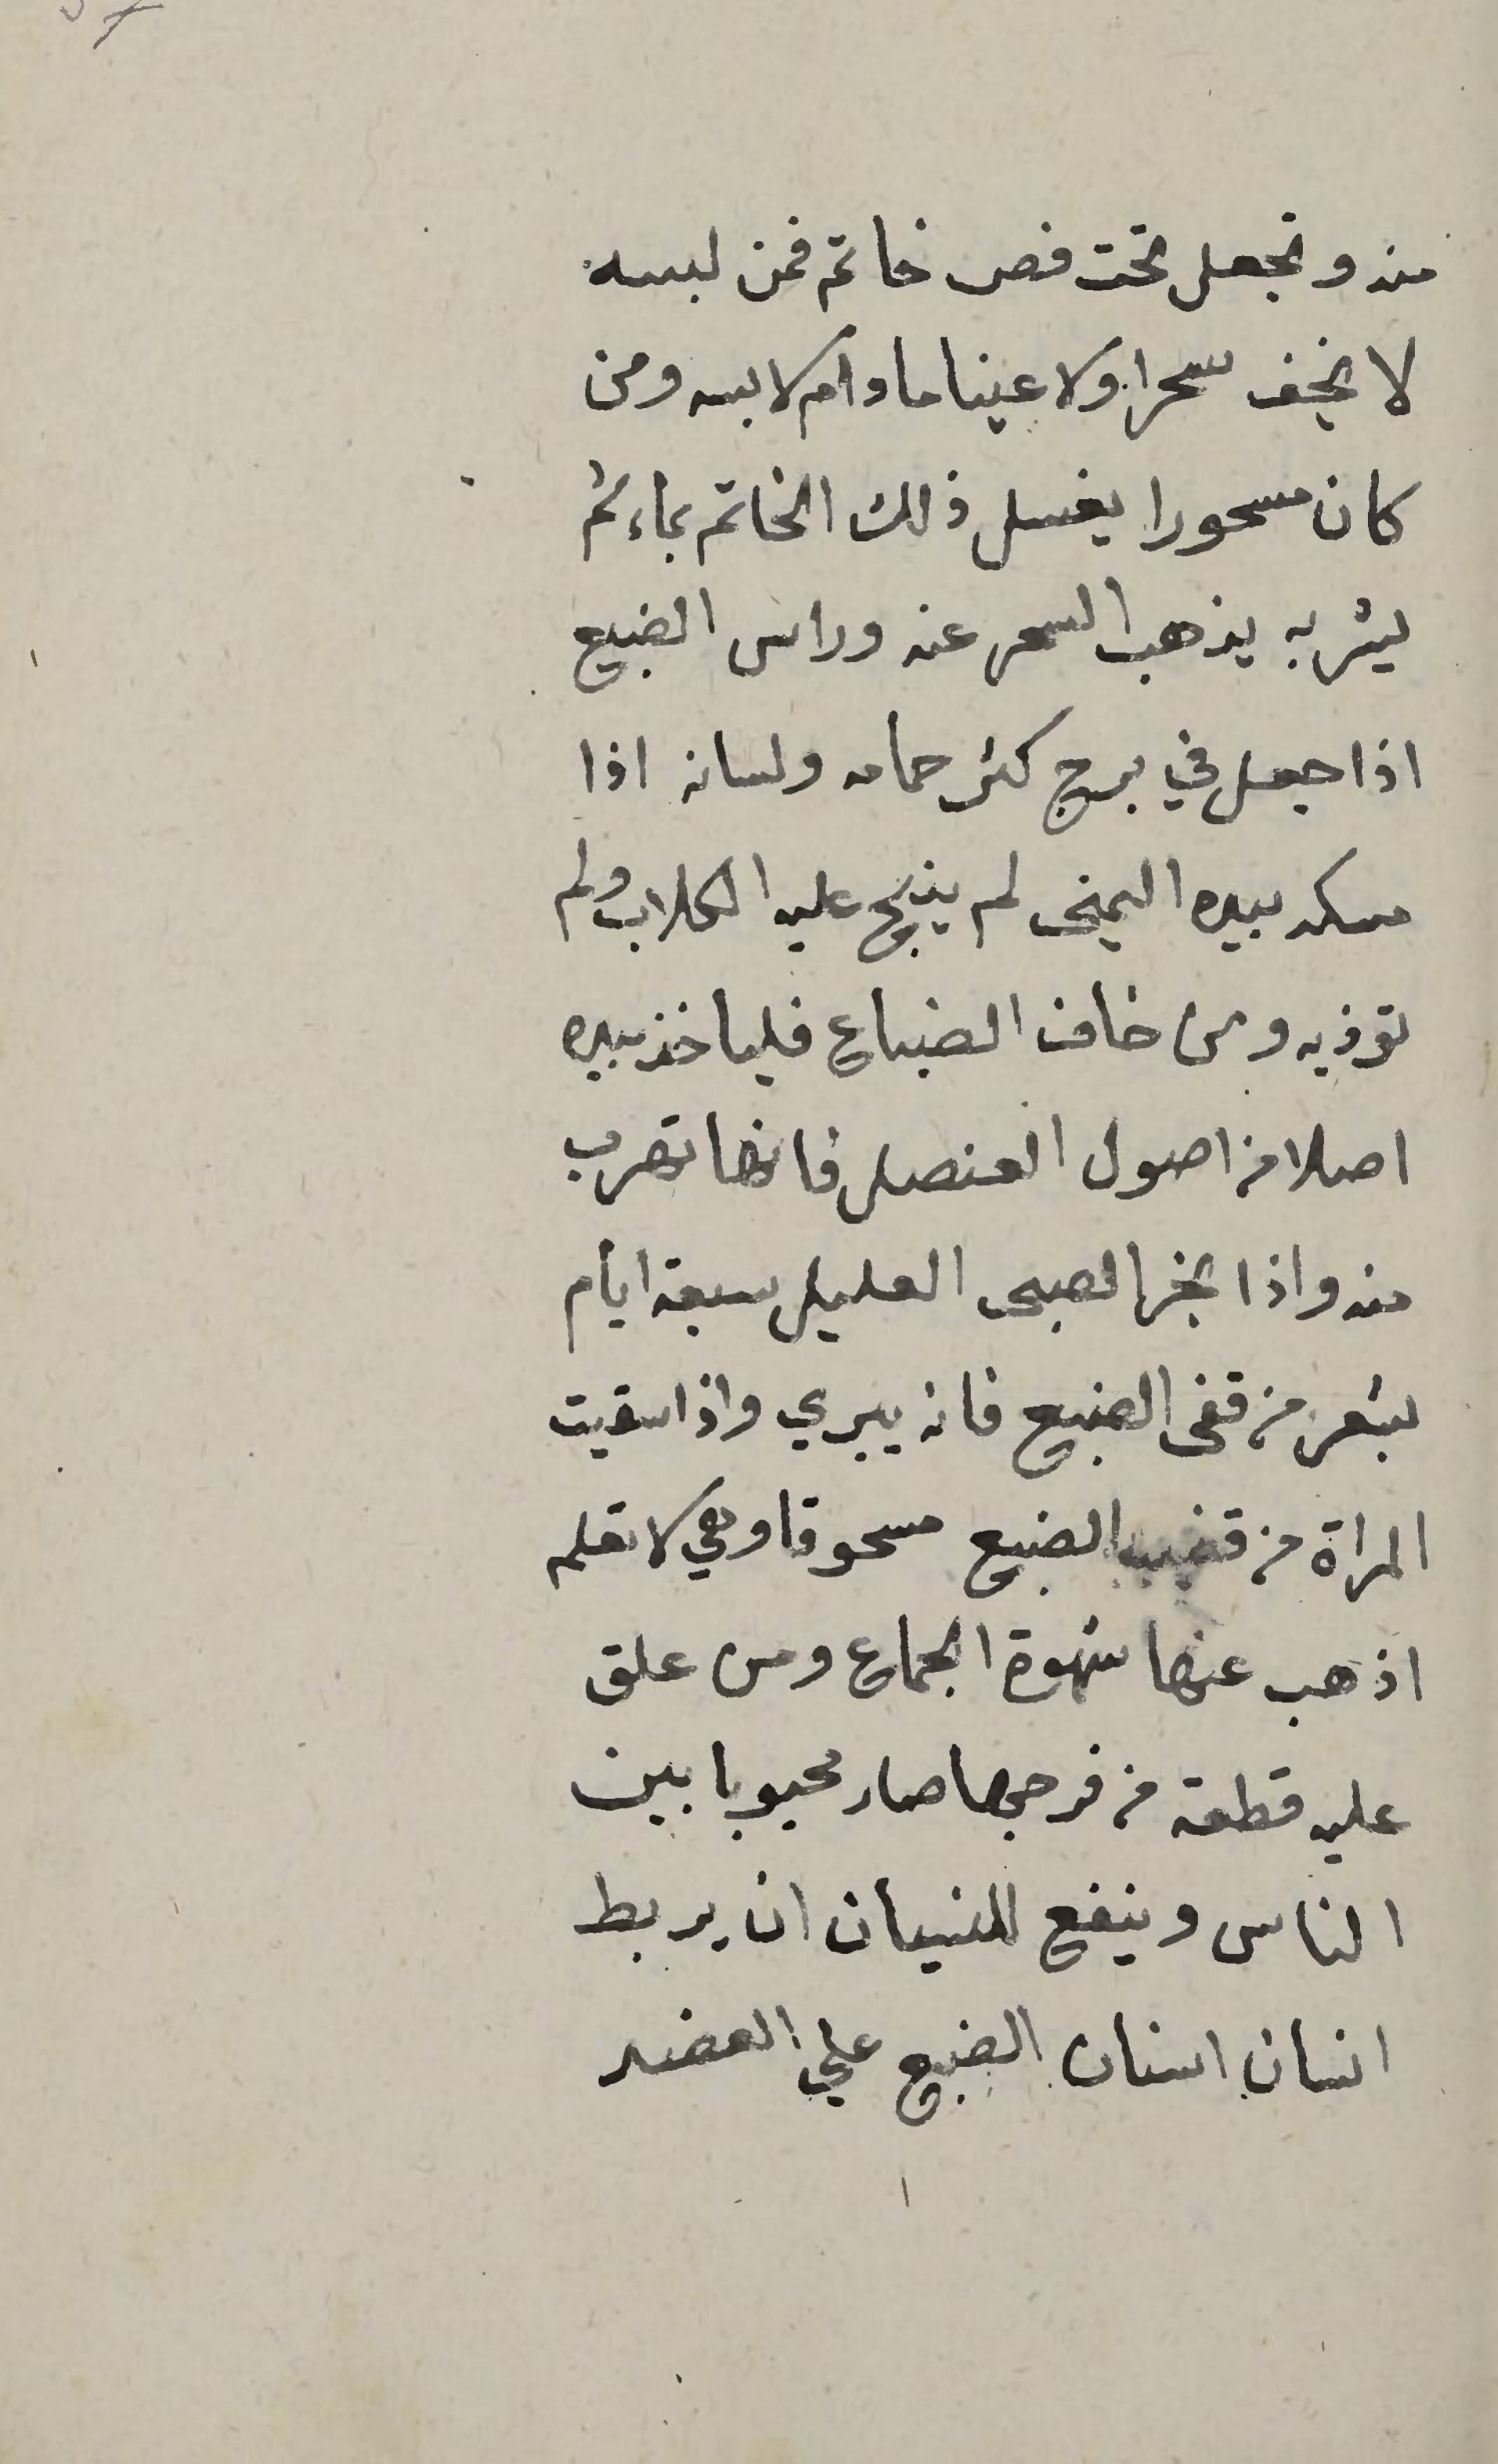 منه وتجعل تحت فص خاتم فمن لبسه
لا يخف سحرا ولا عينا ما دام لابسه ومن
كان مسحورا يغسل ذلك الخاتم بماء ثم
يشربه يذهب السحر عنه وراس الضبع
اذا جعل في برج كثر حمامه ولسانه اذا
مسكه بيده اليمنى لم ينبح عليه الكلاب ولم
توذيه ومن خاف الضباع فلياخذ بيده
اصلا من اصول العنصل فانها تهرب
منه واذا بخر الصبى العليل سبعة ايام
بشعر من قفى الضبع فانه يبري واذا سقيت
المراة من قضيب الضبع مسحوقا وهي لا تعلم
اذهب عنها شهوة الجماع ومن علق
عليه قطعة من فرجها صار محبوبا بين
الناس وينفع للنسيان ان يربط
انسان اسنان الضبع علي العضد